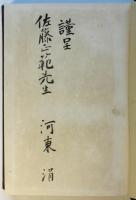 謹呈
佐藤正範先生
河東涓